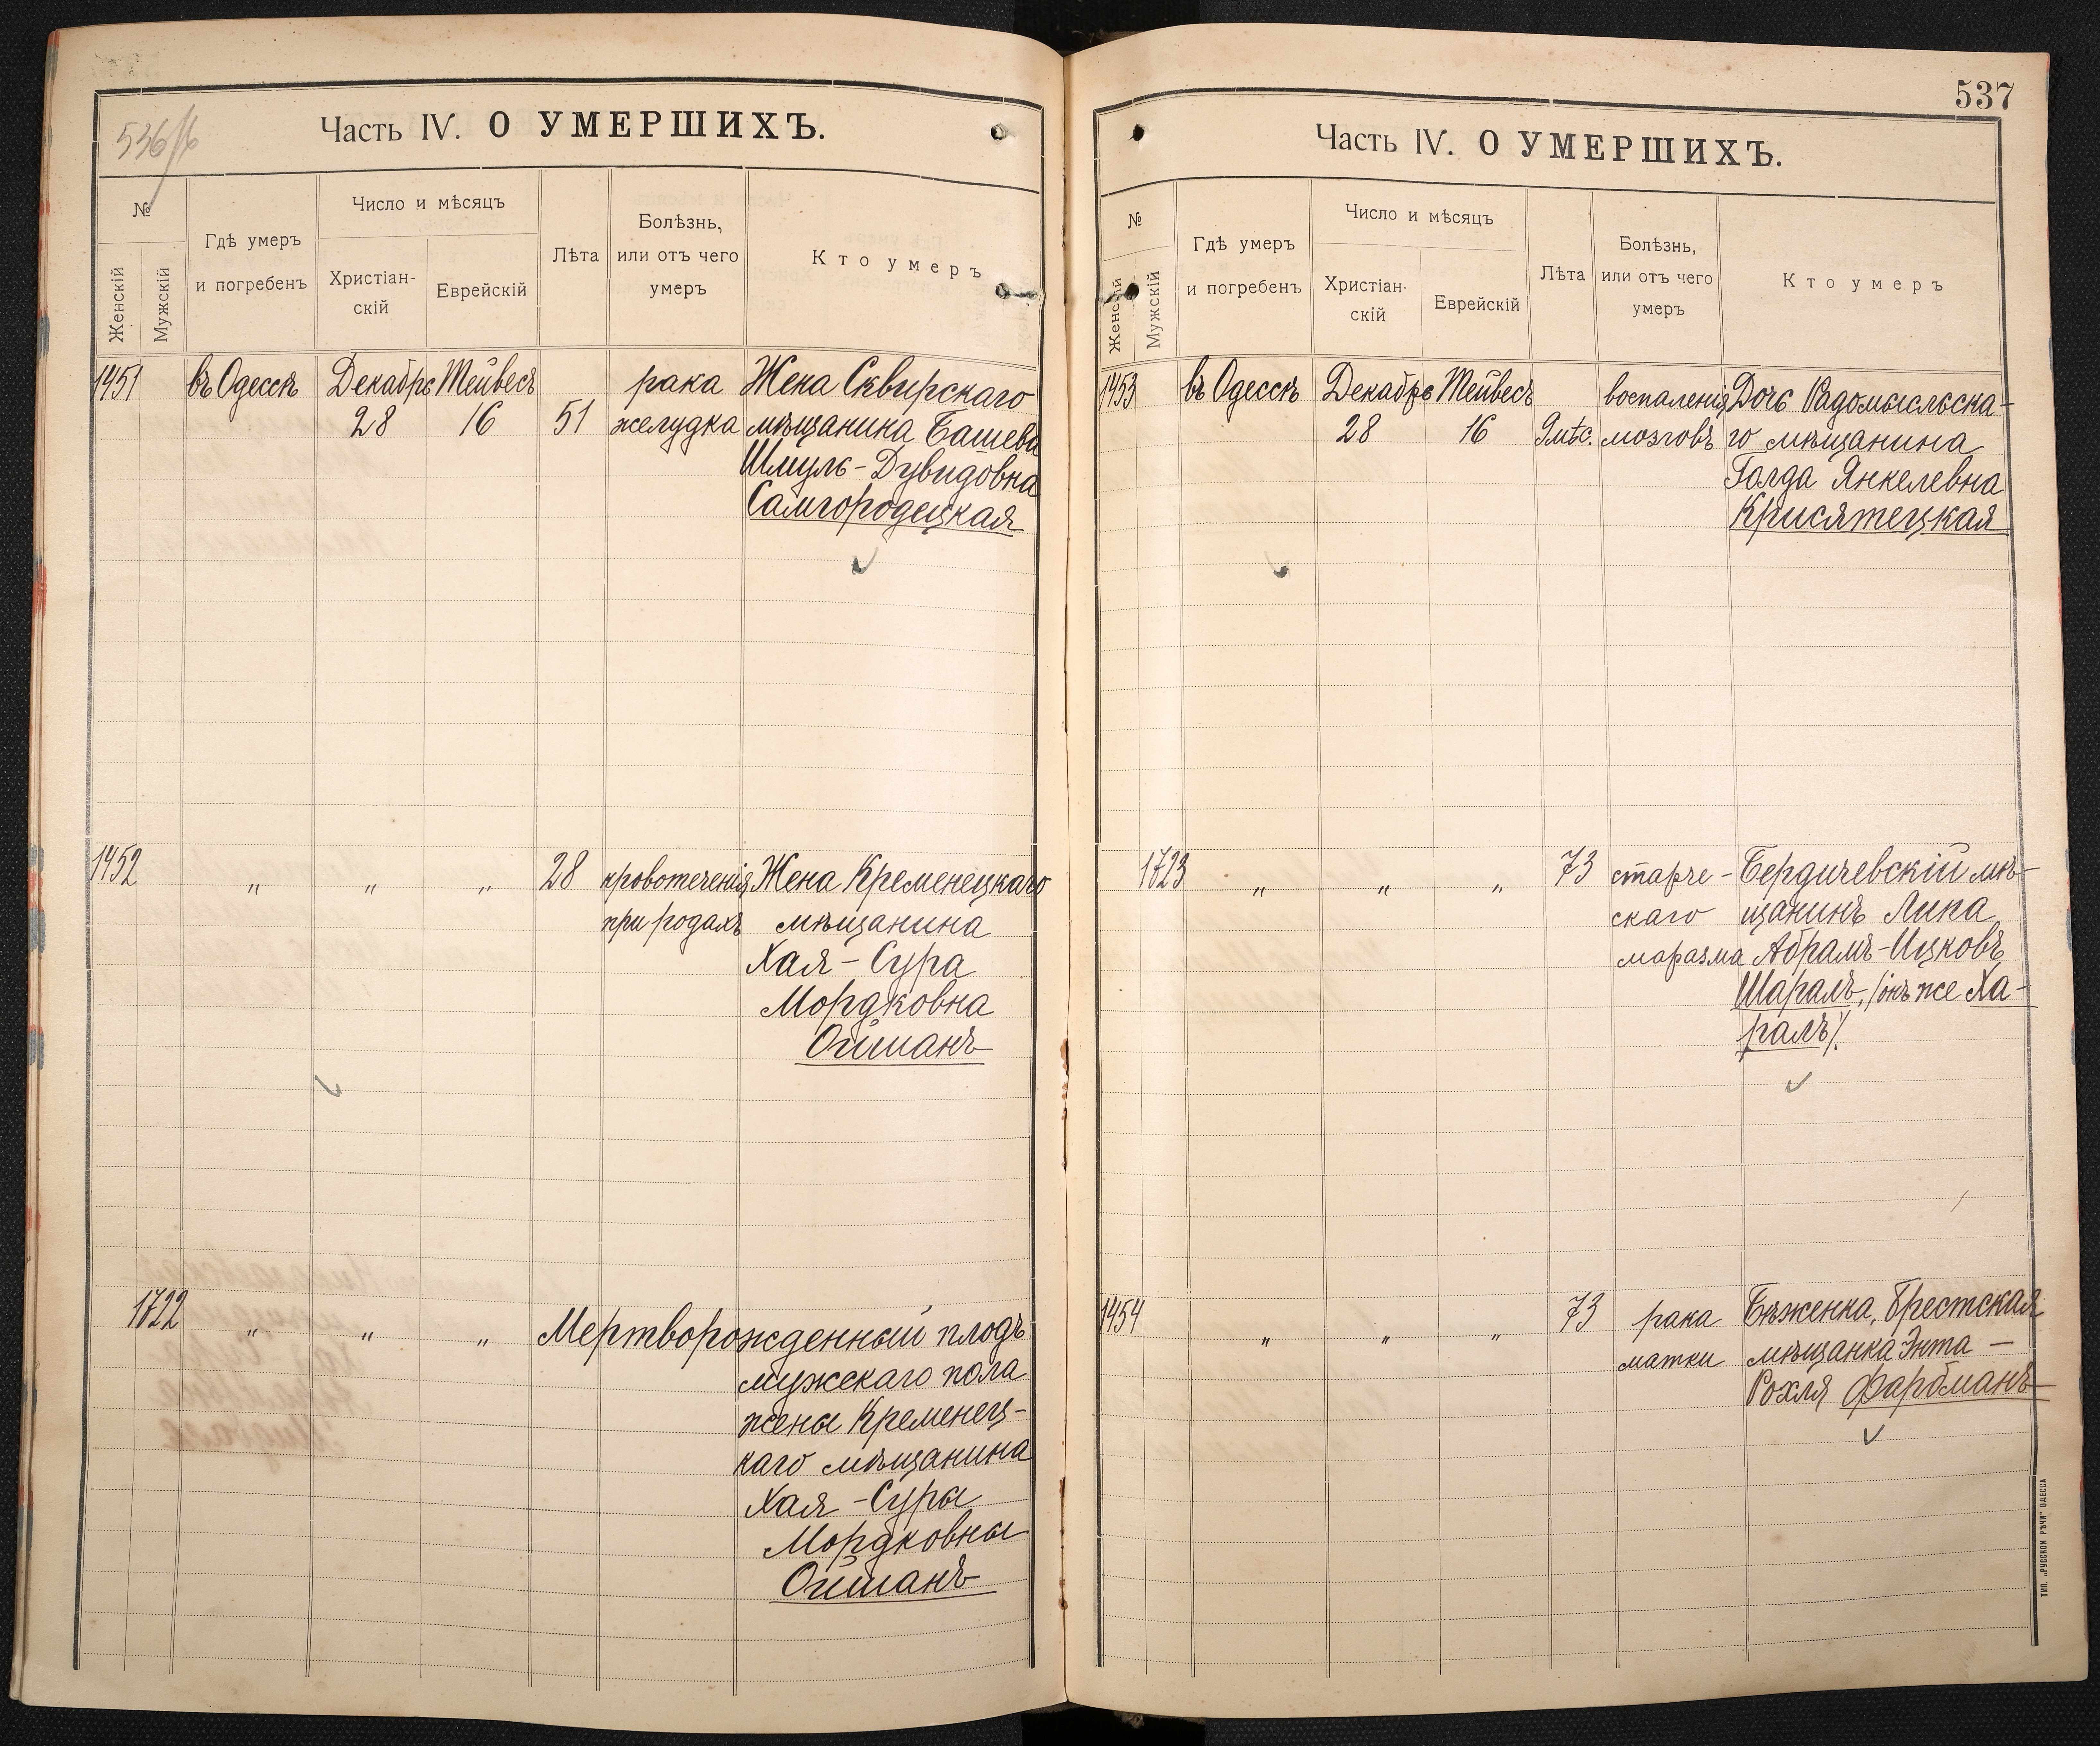 536/б
Часть IV. О УМЕРШИХЪ.
№
Женскій
Мужскій
Гдѣ умеръ
и погребенъ
Число и мѣсяцъ
Христіан-
скій
Еврейскій
Лѣта
Болѣзнь,
или отъ чего
умеръ
Кто умеръ
1451 въ Одессѣ Декабрь Тейвесъ рака Жена Сквирскаго
28 16 51 желудка мѣщанина Башева
Шмуль-Дувидовна
Самгородецкая
1452 " " " 28 кровотеченія Жена Кременецкаго
при родахъ мѣщанина
Хая-Сура
Мордковна
Ойшманъ
1722 " " " Мертворожденный плодъ
мужескаго пола
жены Кременец-
каго мѣщанина
Хая-Суры
Мордковны
Ойшманъ
537
Часть IV. О УМЕРШИХЪ.
№
Женскій
Мужскій
Гдѣ умеръ
и погребенъ
Число и мѣсяцъ
Христіан-
скій
Еврейскій
Лѣта
Болѣзнь,
или отъ чего
умеръ
Кто умеръ
1453 въ Одессѣ Декабрь Тейвесъ воспаленія Дочь Радомысльска-
28 16 9 мѣс. мозговъ го мѣщанина
Голда Янкелевна
Крисятецкая
1723 " " " 73 старче- Бердичевскій мѣ-
скаго щанинъ Липа
маразма Абрамъ-Ицковъ
Шаралъ, /онъ же Ха-
ралъ/.
1454 " " " 73 рака Бѣженка, Брестская
матки мѣщанка Энта -
Рохля Фарбманъ
ТИП. „РУССКОЙ РѢЧИ" ОДЕССА